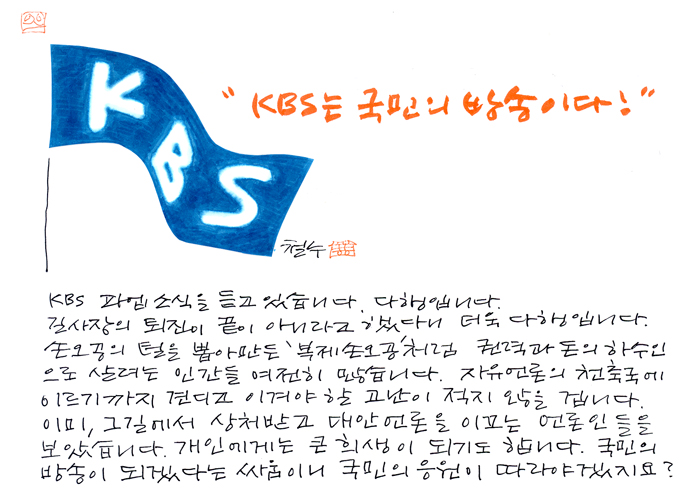 KBS
"KBS는 국민의 방송이다!"
철수
KBS 파업소식을 듣고 있습니다. 다행입니다.
길사장의 퇴진이 끝이 아니라고 했다니 더욱 다행입니다.
손오공의 털을 뽑아만든 '복제손오공'처럼 권력과 돈의 하수인
으로 살려는 인간들 여전히 많습니다. 자유언론의 천축국에
이르기까지 견디고 이겨야 할 고난이 적지 않을 겁니다.
이미, 그길에서 상처받고 대안언론을 이끄는 언론인들을
보았습니다. 개인에게는 큰 희생이 되기도 합니다. 국민의
방송이 되겠다는 싸움이니 국민의 응원이 따라야겠지요?